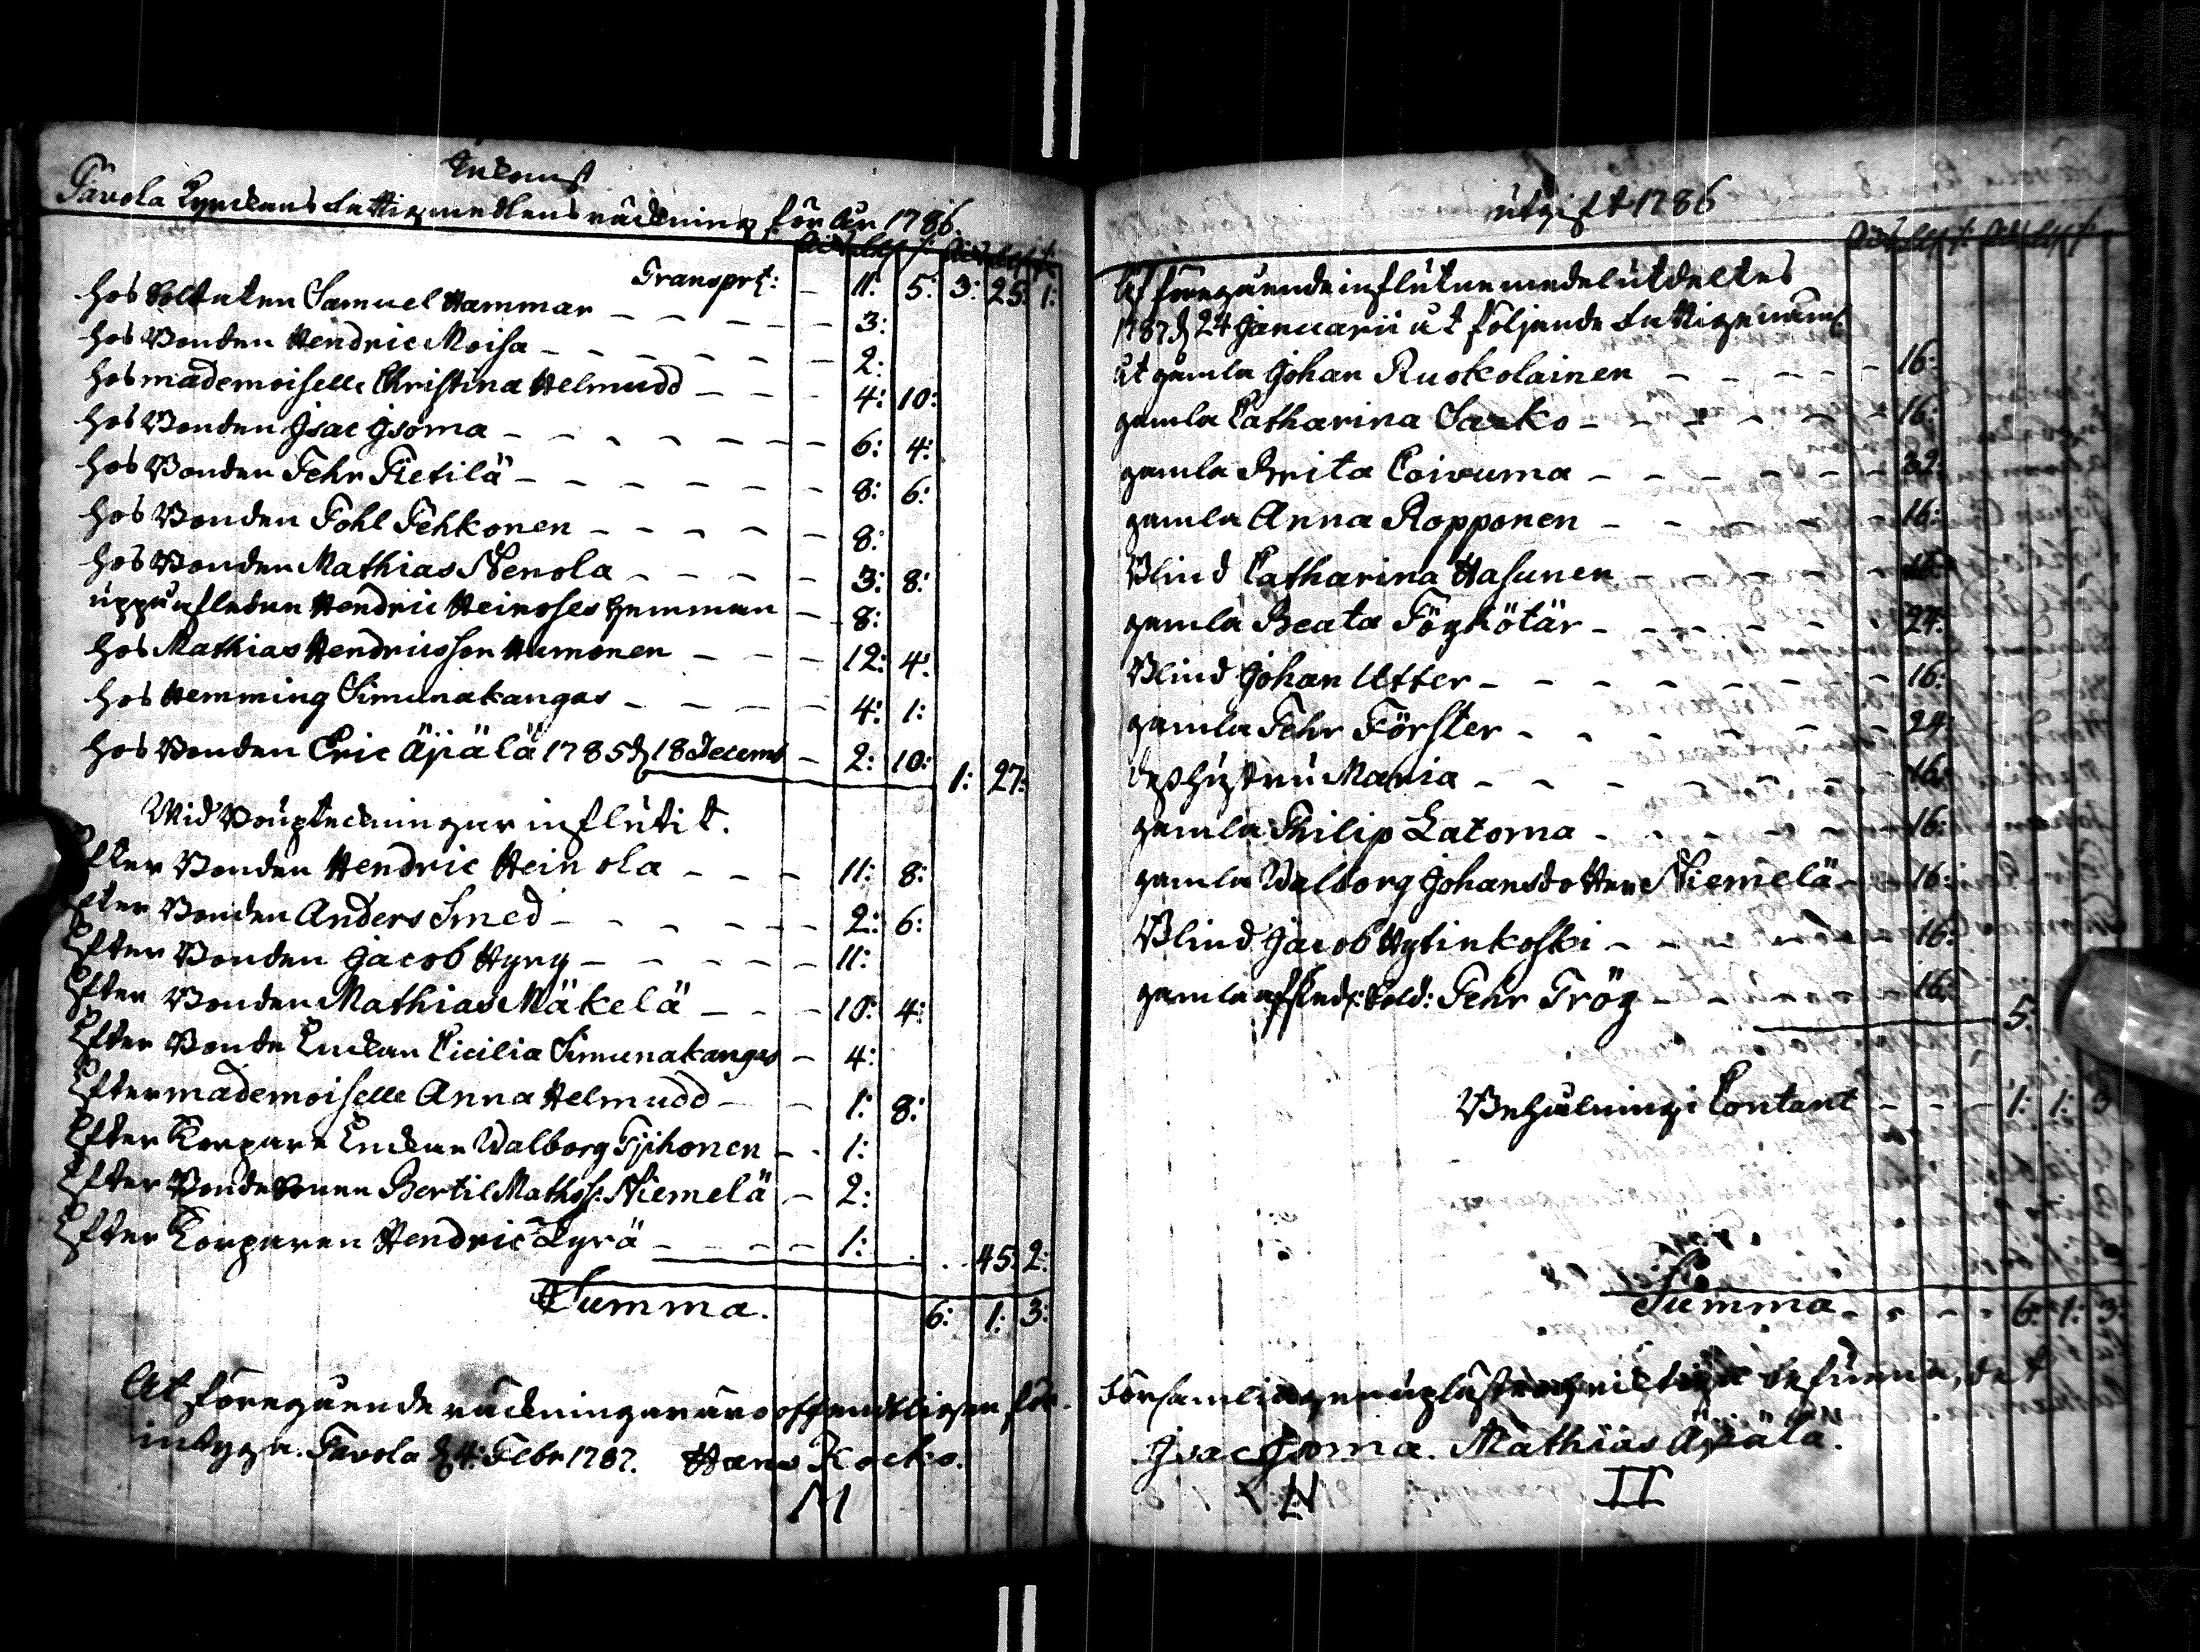 Inkomst
Pavola Kyrckans fattigmedlens räckning för år 1786.
Transprt: 11: 5: 3: 25: 1:
hos Soldaten Samuel Hammar 3:
hos Bonden Hendric Moisa 2:
hos mademoiselle Christina Helmudd 4: 10:
hos Bonden Isac Isoma 6: 4:
hos Bonden Pehr Pietilä 8: 6:
hos Bonden Pohl Pehkonen 8:
hos Bonden Mathias Nenola 3: 8:
uppå afledne Hendric Heinolas hemman 8:
hos Mathias Hendricsson Humonen 12: 4:
hos Hemming Simunakangas 4: 1:
hos Bonden Eric Äijälä 1785 d 18 Decemb 2: 10: 1: 27:
Wid Boupteckningar influtit.
Efter Bonden Hendric Heinola 11: 8:
Efter Bonden Anders Smed 2: 6:
Efter Bonden Jacob Hyry 11:
Efter Bonden Mathias Mäkelä 10: 4:
Efter Bonde Enckan Cicilia Simunakangas 4:
Efter mademoiselle Anna Helmudd 1: 8:
Efter Torpare Enckan Walborg Pjihonen 1:
Efter Bondesonen Bertil Mathss: Niemelä 2:
Efter Torparen Hendric Kyrä 1: 45: 2:
Summa. 6: 1: 3:
At föregående räckningar äro offendtligen för
intyga. Pavola d 4: Febr 1787. Hans Kocko.
utgift 1786
Af föregående influtne medel utdeltes
1787 d 24 Januarii åt följande fattige näml
åt gamla Johan Ruokolainen 16:
gamla Catharina Sarko 16:
gamla Brita Coivuma 32:
gamla Anna Ropponen 16:
Blind Catharina Hasunen 16:
gamla Beata Pöyhötär 24:
Blind Johan Utter 16:
gamla Pehr Förster 24:
dess hustru Maria 16:
gamla Philip Latoma 16:
gamla Walborg Johansdotter Niemelä 16:
Blind Jacob Hytinkoski 16:
gamla afsked: Sold: Pehr Trög 16: 5:
Behålning i Contant 1: 1: 3
Summa 6: 1: 3:
församlingen upläste och riktige befunne, det
Isac Isoma. Mathias Äijälä.